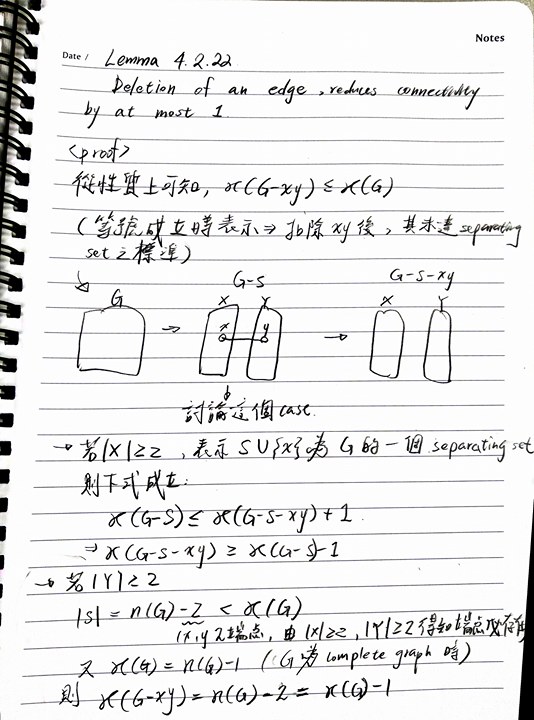 Notes
Date / Lemma 4.2.22
Deletion of an edge, reduces connectivity
by at most 1.
<proof>
從性質上可知, κ(G-xy) ≤ κ(G)
(等號成立時表示⇒扣除 xy 後, 其未達 separating
set 之標準)
G G-S G-S-xy
X Y X Y
x y
討論這個 case.
→ 若|X|≥2, 表示 S∪{x} 為 G 的一個 separating set
則下式成立:
κ(G-S) ≤ κ(G-S-xy)+1.
⇒ κ(G-S-xy) ≥ κ(G-S)-1
→ 若 |Y|≥2
|S| = n(G)-2 < κ(G)
x, y 之端點, 由 |X|≥2, |Y|≥2 得知端點必存在
又 κ(G) = n(G)-1 (G 為 complete graph 時)
則 κ(G-xy) = n(G)-2 = κ(G)-1